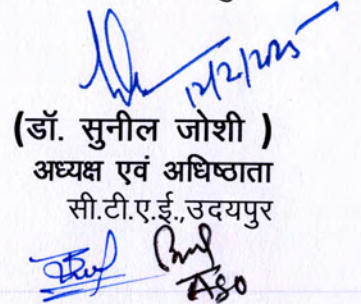 12/2/2025
(डॉ. सुनील जोशी )
अध्यक्ष एवं अधिष्ठाता
सी.टी.ए.ई.,उदयपुर
ASO